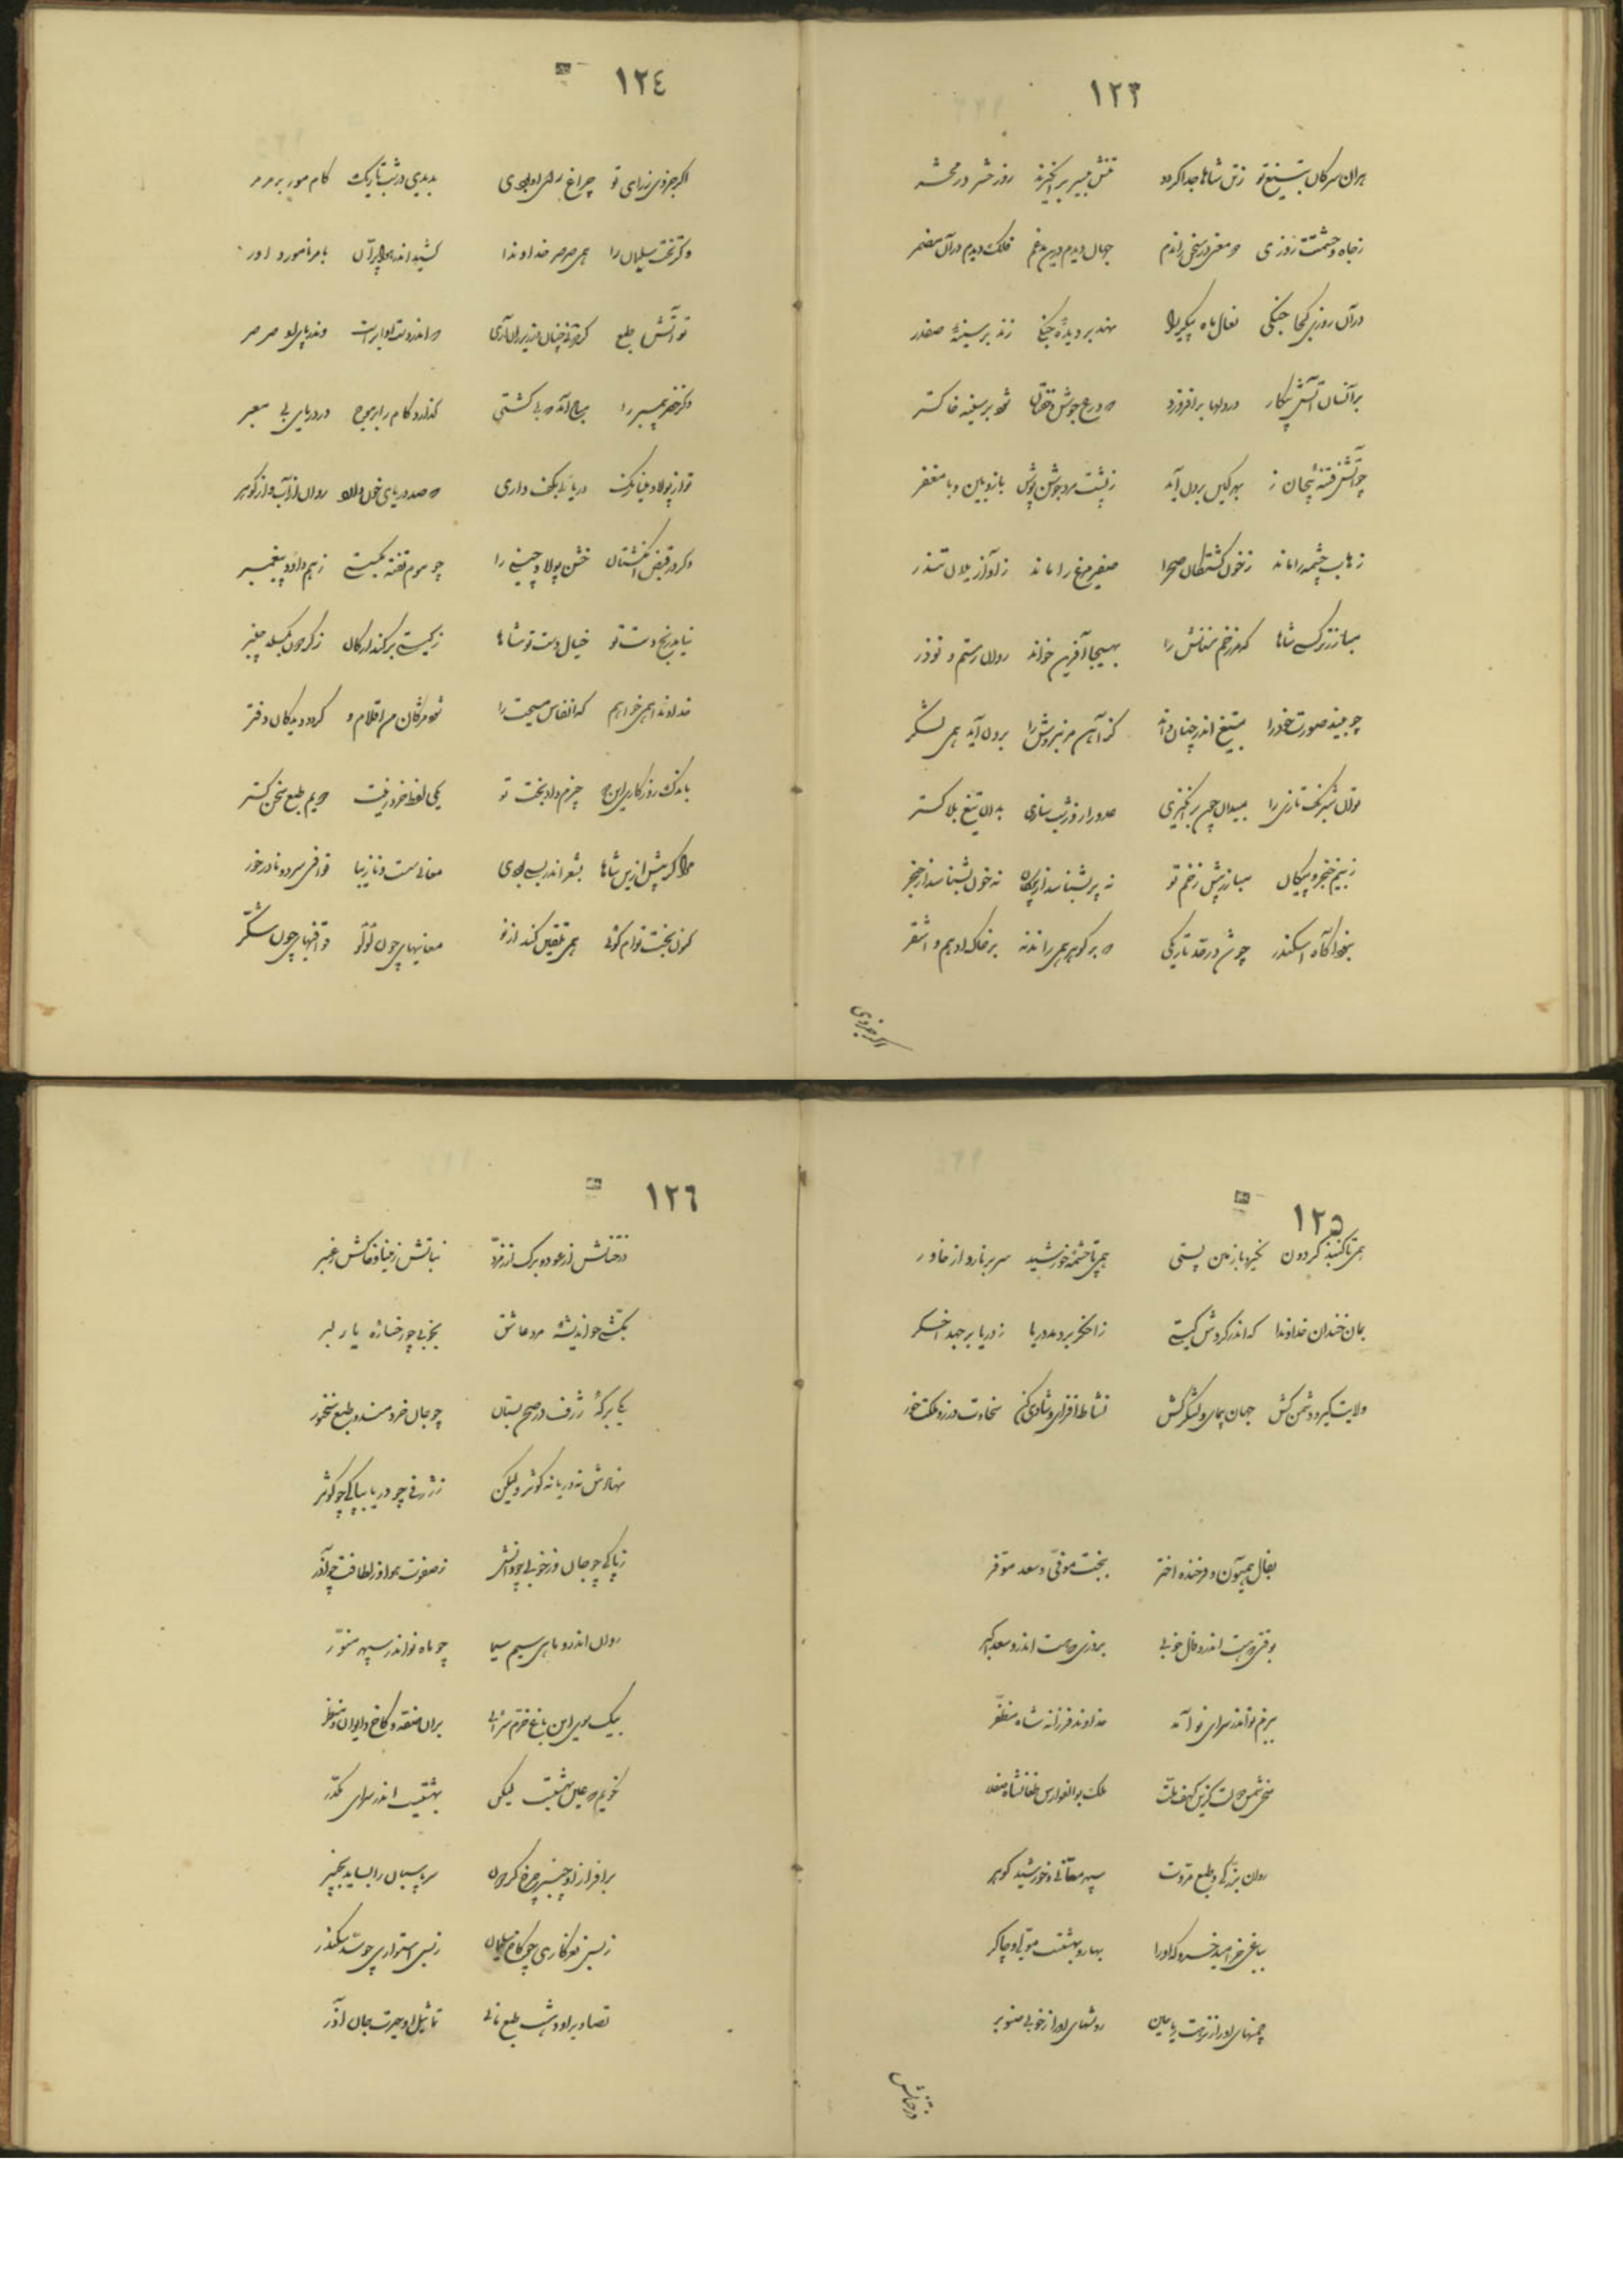 ١٢٣
هران سرکان بتیغ تو ز تن شاها جدا کردد تنش بیسر برانکیزند روز حشر در محشر
ز جاه و حشمتت روزی دو معنی در سخن راندم جهان دیدم درین مدغم فلک دیدم در آن مضمر
در آن روزی کجا جنکی نعال باه پیکر را نهد بر دیدهٔ جنکی زند بر سینهٔ صفدر
بر آنسان آتش پیکار در دلها برافروزد که درع و جوش شود بر سفته خاکستر
چو آتش فتنه پیچان ز بهر کین برون آید ز پشت مرد جوشن پوش با زوبین و با مغفر
زهاب چشمه را ماند ز خون کشتکان صحرا صفیر مرغ را ماند ز آواز یلان تندر
مبارز ترک شاها که هر زخم سنانش را بهیجا آفرین خواند روان رستم و نوذر
چو بیند صورت خود را بتیغ اندر چنان داند کز آهن مر نبردش را برون آید همی لشکر
تو آن شبرنک تازی را بمیدان چون برانکیزی عدو را روز شب سازی بدان تیغ بلاکستر
ز بیم خنجر و پیکان مبارز پیش زخم تو نه پر بشناسد از پیکان نه خون بشناسد از خنجر
بخواکاه اسکندر چو شد در حد تاریکی که بر کوهر همی راندند بر خاک ادهم و اشقر
اکر جزوی
١٢٤
اکر جزوی ز رای تو چراغ راه او بودی بدیدی در شب تاریک کام مور بر مرمر
و کر تخت سلیمان را همی صرصر خداوندا کشید اندر هوا پران بامر نامور داور
تو آتش طبع کردونی چنان در زیر ران آری که اندر دست او ابراست و اندر پای او صرصر
و کر خضر پیمبر را مباح آمد که بی کشتی کذارد کام را بر موج در دریای بی معبر
تو از پولاد مینا رنک دریائی بکف داری که صد دریای خون راند روان از آب و از کوهر
و کر در قبض انکشتان خشن پولاد چینی را چو موم تفته بکسست ز بیم داود پیغمبر
نیابد رنج دست تو خیال دست تو شاها ز کیتی برکند ارکان ز کردون بکسلد چنبر
خداوندا همی خواهم که انفاس مسیحت را شود مژکان من اقلام و کردد دیدکان دفتر
باندک روزکار این جا چیزم داد بخت تو یکی لفظ خرد زینت دویم طبع سخن کستر
مرا کر پیش ازین شاها بشعر اندر بسی بودی معانی سست و نازیبا قوافی سرد و نادرخور
کنون بختت توام کوئی همی تلقین کند از تو معانیهای چون لؤلؤ قوافیهای چون شکر
١٢٥
همی تا کنبذ کردون نخیزد باز زمین پستی همی تا چشمه خورشید سر بر نارد از خاور
بمان خندان خداوندا که اندر کردش کیتی ز اخکر بردمد دریا ز دریا برجهد اخکر
ولایت کیر و دشمن کش جهان پیمای و لشکر کش نشاط افزای و شادی کن سخاوت ورز و ملکت خور
بفال همیون و فرخنده اختر ببخت موفق و سعد موفر
بوقتی که هست اندرو فال خوبی بروزی که هست اندرو سعد اکبر
ببزم نو اندر سرای نو آمد خداوند فرزانه شاه مظفر
شمس دولت کزین کهف ملت ملک بوالفوارس طغانشاه صفدر
روان بزرکی و طبع مروت سپهر معانی و خورشید کوهر
بباغی خرامید خسرو که او را بهار و بهشتست مولی و چاکر
چمنهای او را ز نزهت ریاحین روشهای او را ز خوبی صنوبر
درختانش
١٢٦
درختانش از عود و برک از زمرد نباتش ز مینا و خاکش ز عنبر
بکشی چو اندیشهٔ مرد عاشق بخوبی چو رخسارهٔ یار دلبر
یکی برکهٔ ژرف در صحن بستان چو جان خردمند و طبع سخنور
نهادش نه دریا نه کوثر ولیکن ز ژرفی چو دریا بپاکی چو کوثر
ز پاکی چو جان و ز خوبی چو دانش ز صفوت هوا و ز لطافت چو آذر
روان اندرو ماهی سیم سیما چو ماه نو اندر سپهر منور
بیک سوی این باغ خرم سرائی بران صفه و کاخ و ایوان و منظر
نکویم که عین بهشتست لیکن بهشتست اندر سرای مکدر
برافراز او چنبر چرخ کردان سر پاسبان را بساید بچنبر
ز بس نغزکاری چو کاخ سلیمان ز بس استواری چو سد سکندر
تصاویر او دهشت طبع مانی تماثیل او حیرت جان آذر